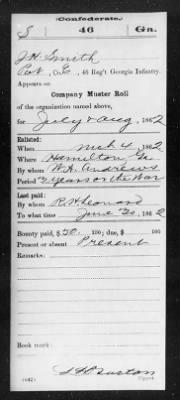 Confederate.
S 46 Ga.
J H Smith
Pvt, Co. E, 46 Reg't Georgia Infantry.
Appears on
Company Muster Roll
of the organization named above,
for July & Aug, 1862
Enlisted:
When Mch 4, 1862
Where Hamilton, Ga.
By whom W. A. Andrews
Period 3 Years or the War
Last paid:
By whom R H Leonard
To what time June 30, 1862
Bounty paid, $50 100; due, $ 100
Present or absent Present
Remarks:
Book mark:
(642) Copyist.